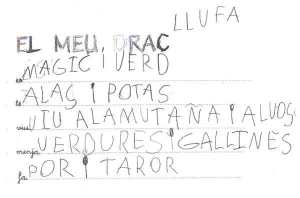 LLUFA
EL MEU DRAC
es MAGIC I VERD
té ALAS I POTAS
viu VIU ALAMUTAÑA I ALVOSC
menja VERDURES I GALLINES
fa POR I TAROR